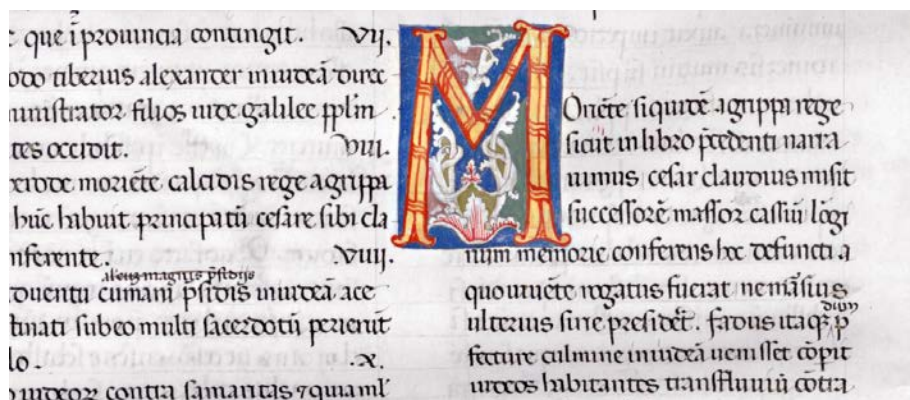 que ī prouincia contingit. VII.
odo tiberius alexander in iudeā direc
ministrator filios iude galilee pplm
tes occidit. VIII.
erode moriēte calcidis rege agrippa
huic habuit principatū cesare sibi cla
nferente. VIIII.
aliq̄ magnus p̄fidiis
duentu cumani p̄sidis in iudeā ace
tinati sub eo multi sacerdotū perierūt
lo. X.
iudeor contra samaritas &quā ml
MOriēte siquidē agrippa rege
sicut in libro p̄cedenti narra
uimus, cesar claudius misit
successorē massor cassiū lōgi
num memorie conferens hec defuncti a
quo uiuēte rogatus fuerat ne marsius
dium
ulterius sirie presideret. fadus itaq; p
fecture culmine in iudeā uenisset cōpit
iudeos habitantes trans fluuiū cōtra